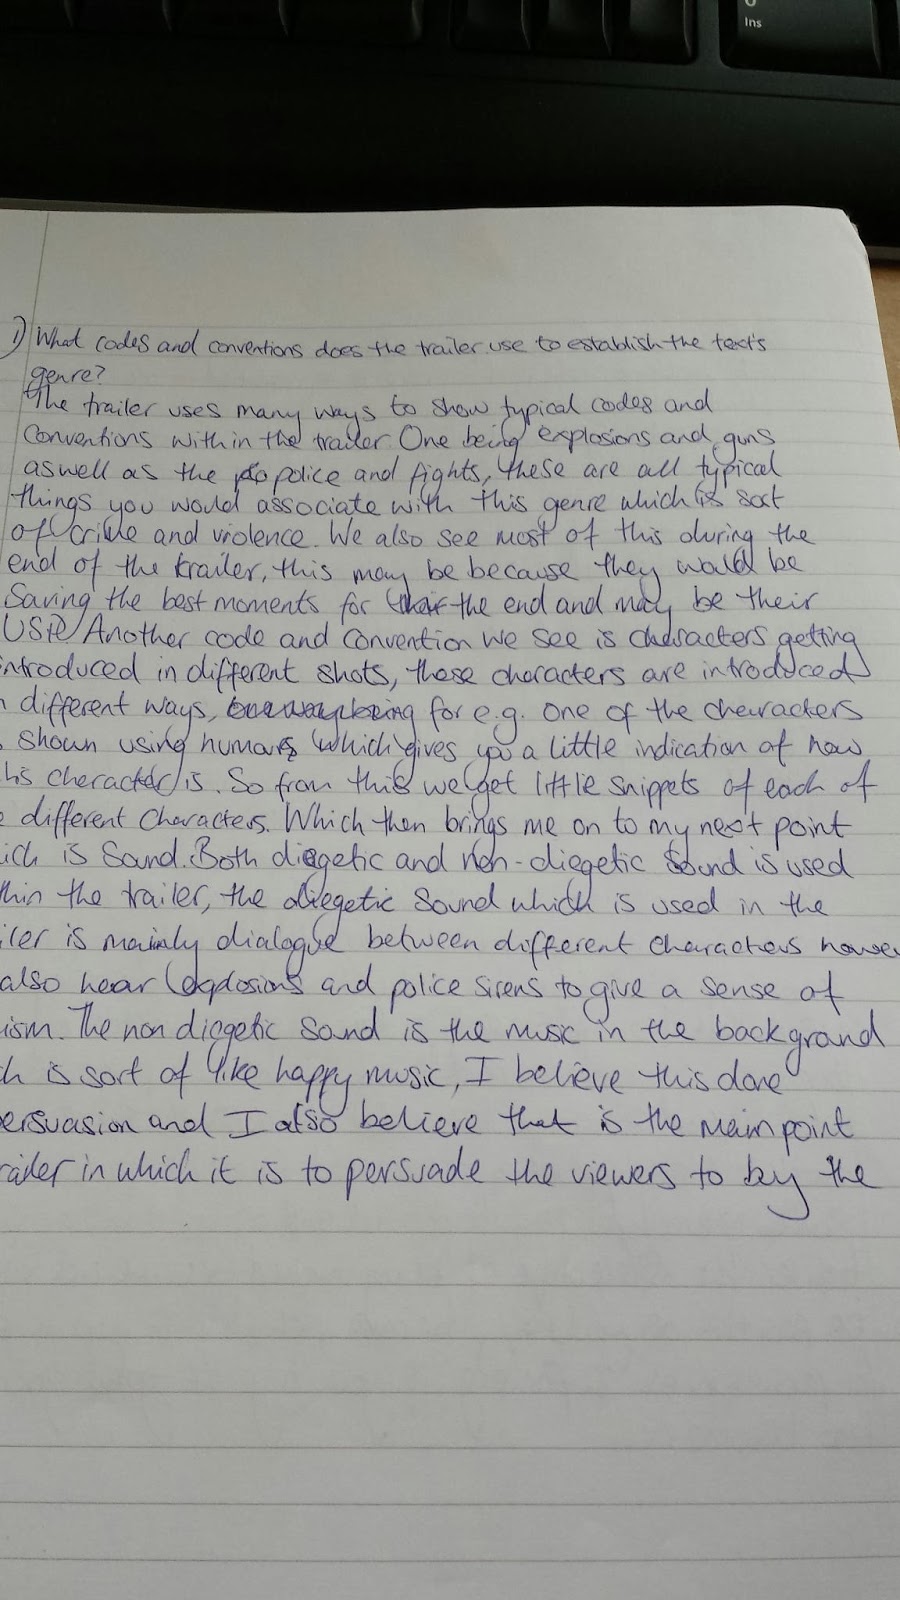 Ins
1) What codes and conventions does the trailer use to establish the text's
genre?
The trailer uses many ways to show typical codes and
Conventions within the trailer. One being explosions and guns
aswell as the police and fights, these are all typical
things you would associate with this genre which is sort
of crime and violence. We also see most of this during the
end of the trailer, this may be because they would be
Saving the best moments for the end and may be their
USP. Another code and convention we see is characters getting
introduced in different shots, these characters are introduced
n different ways, for e.g. one of the characters
s shown using humar, which gives you a little indication of how
his character is. So from this we get little snippets of each of
e different characters. Which then brings me on to my next point
ich is Sound. Both diegetic and non-diegetic Sound is used
thin the trailer, the diegetic Sound which is used in the
iler is mainly dialogue between different characters howev
also hear explosions and police sirens to give a sense of
ism. The non diegetic Sound is the music in the backgrand
ch is sort of like happy music, I believe this done
ersuasion and I also believe that is the main point
railer in which it is to persuade the viewers to by the